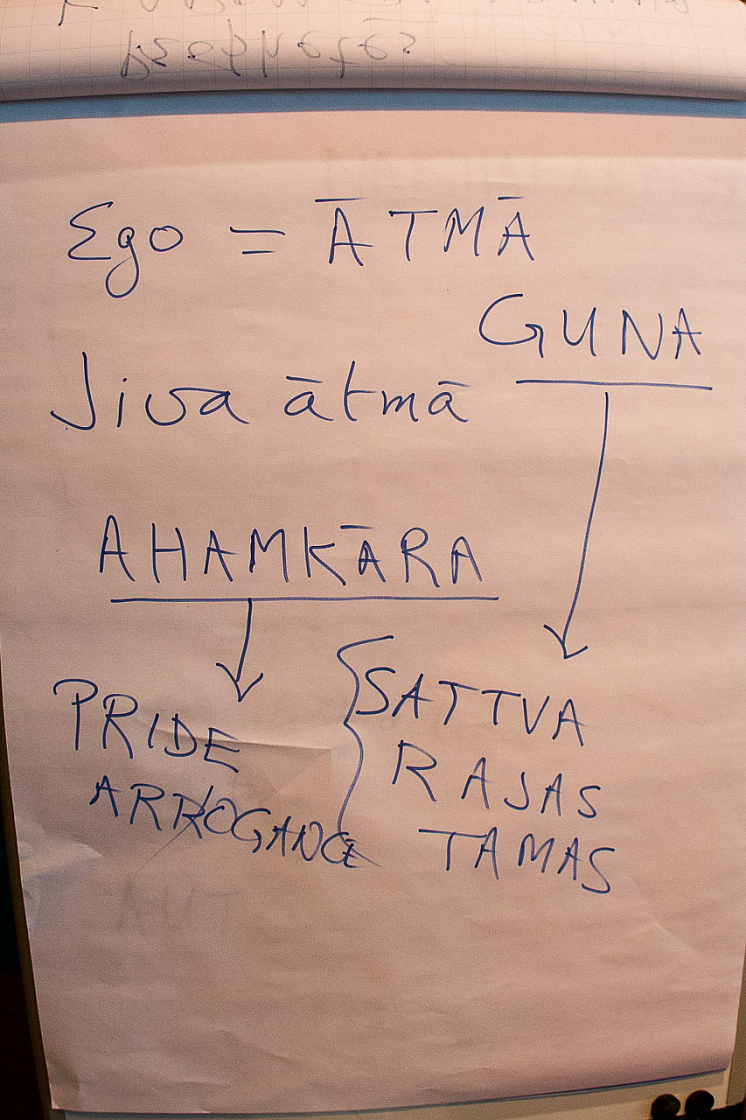 Ego = ĀTMĀ
GUNA
Jiva ātmā
AHAMKĀRA
PRIDE
ARROGANCE
SATTVA
RAJAS
TAMAS